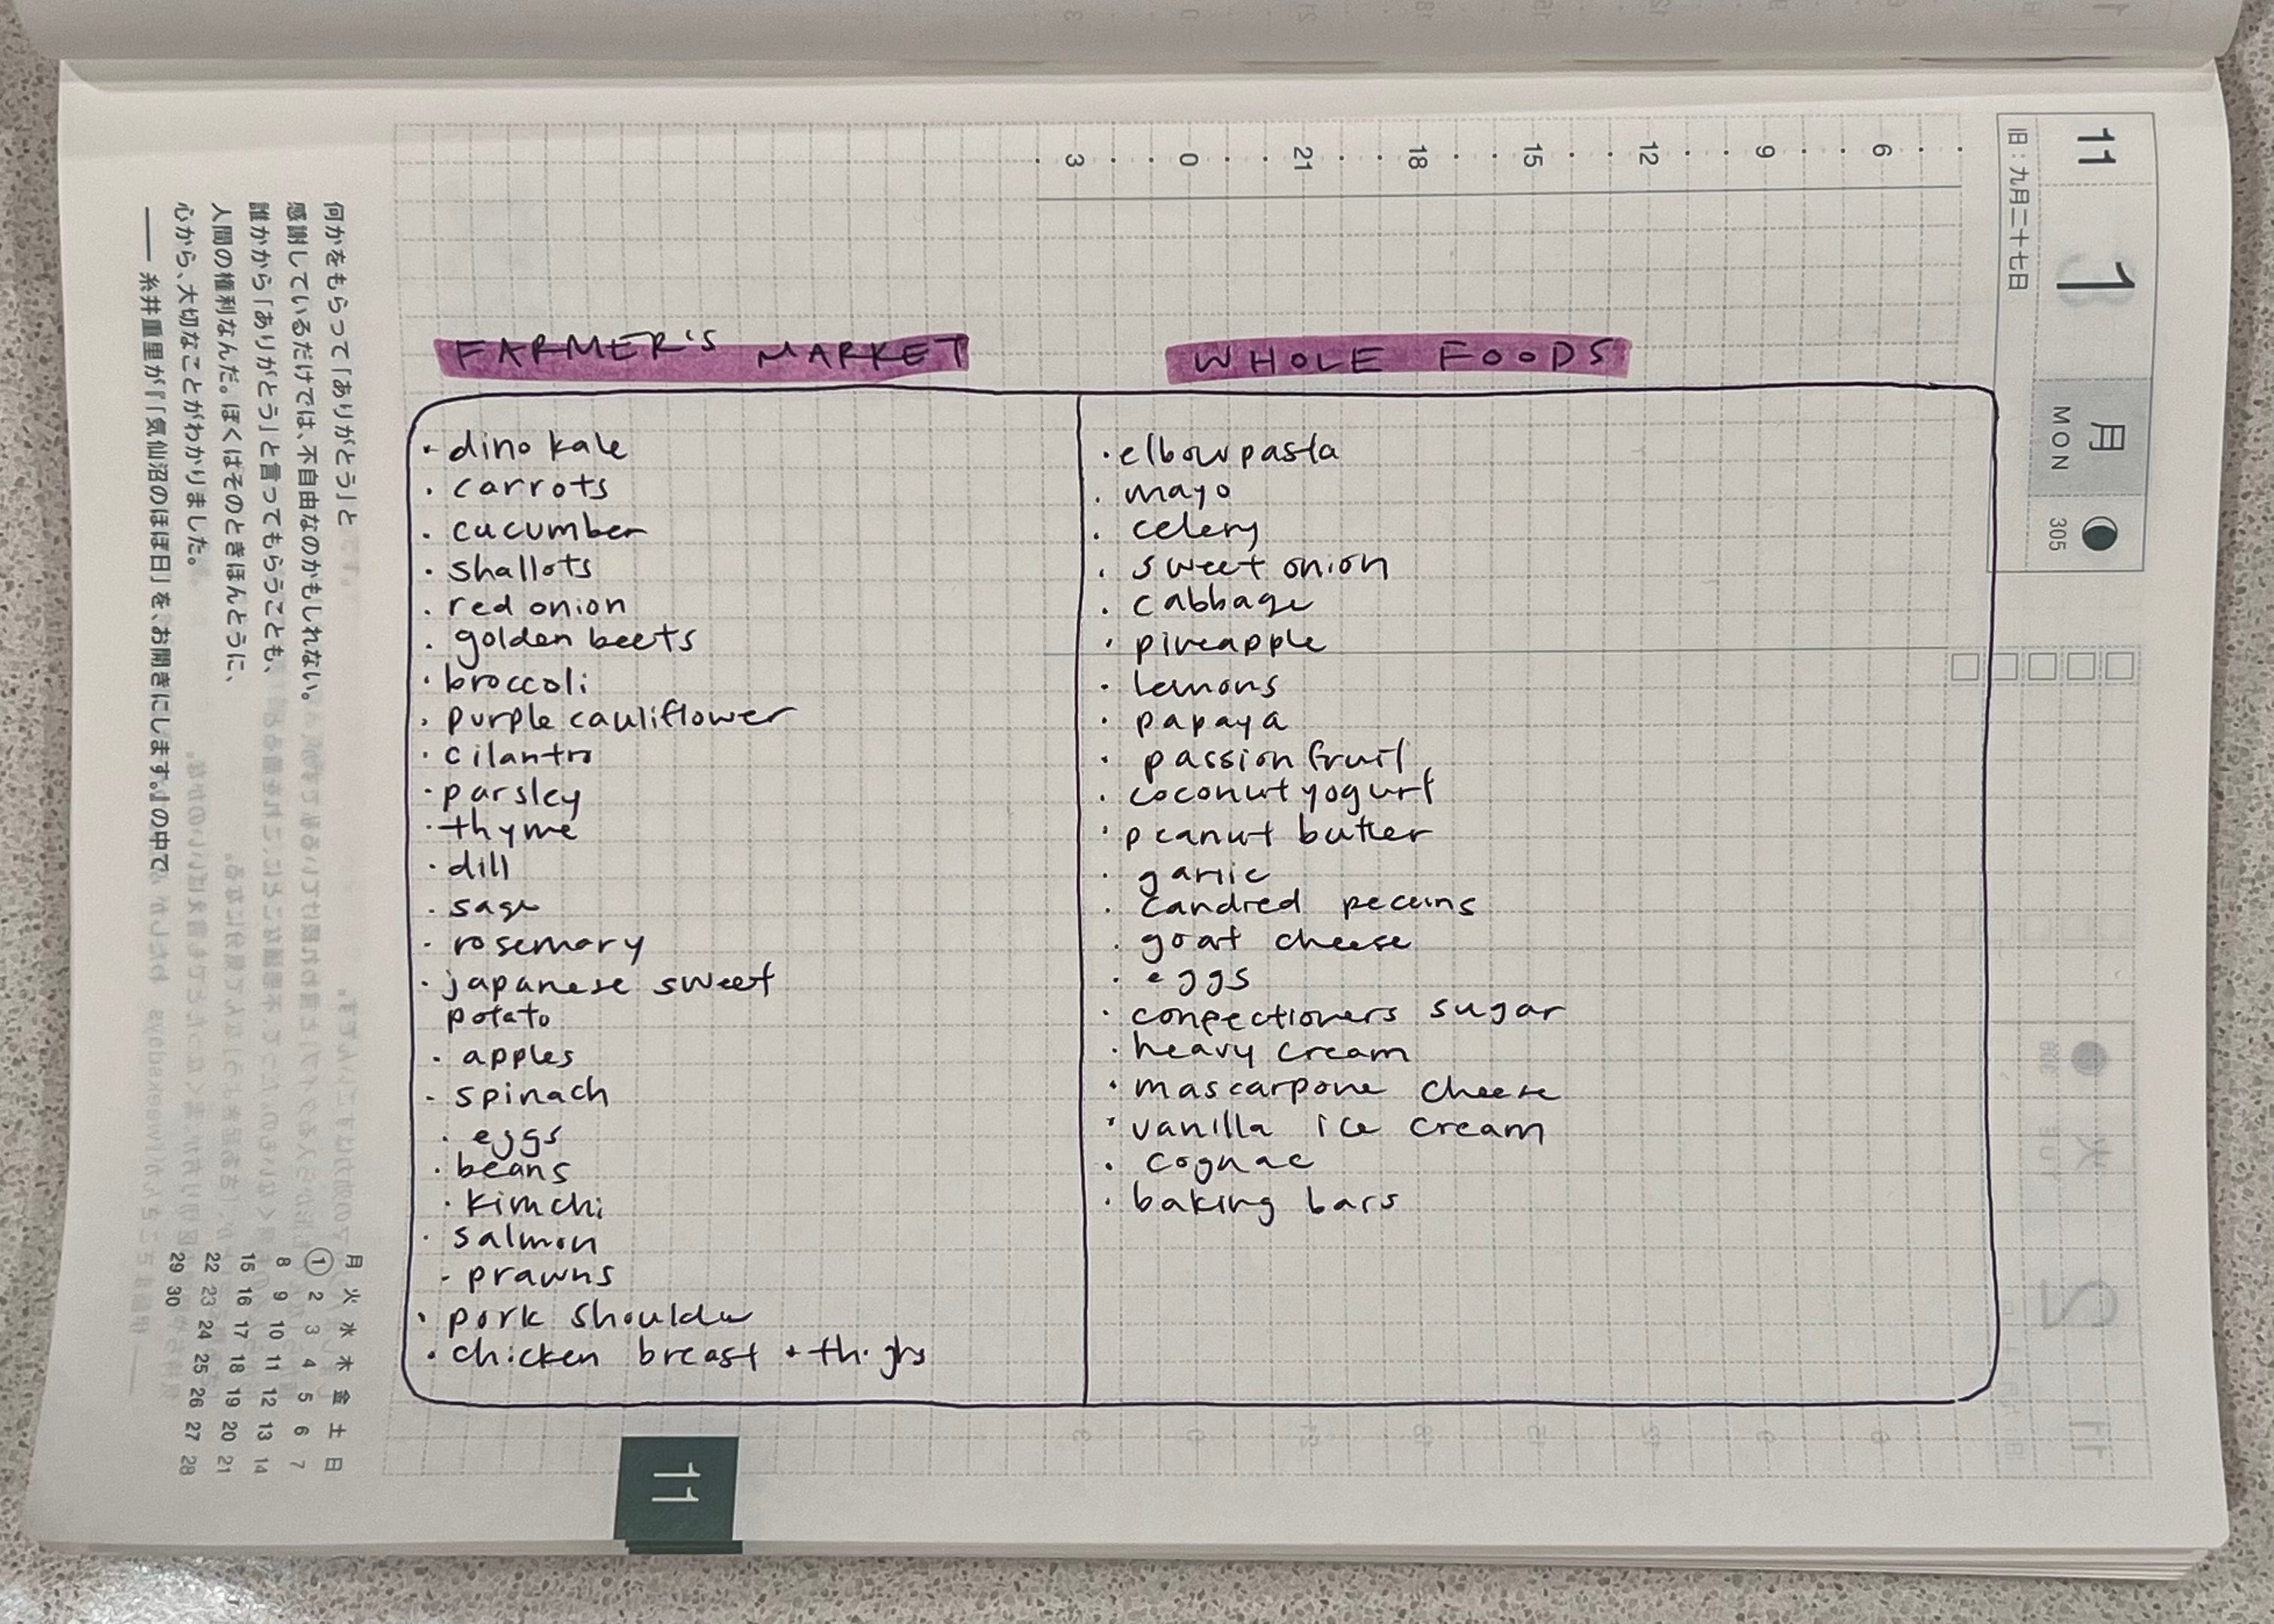 FARMER'S MARKET
· dino kale
· carrots
· cucumber
· shallots
· red onion
· golden beets
· broccoli
· purple cauliflower
· cilantro
· parsley
· thyme
· dill
· sage
· rosemary
· japanese sweet
potato
· apples
· spinach
· eggs
· beans
· kimchi
· salmon
· prawns
· pork shoulder
· chicken breast + thighs
WHOLE FOODS
· elbow pasta
· mayo
· celery
· sweet onion
· cabbage
· pineapple
· lemons
· papaya
· passion fruit
· coconut yogurt
· peanut butter
· garlic
· candied pecans
· goat cheese
· eggs
· confectioners sugar
· heavy cream
· mascarpone cheese
· vanilla ice cream
· cognac
· baking bars
11
1
月
MON
305
旧:九月二十七日
6
9
12
15
18
21
0
3
何かをもらって「ありがとう」と
感謝しているだけでは、不自由なのかもしれない。
誰かから「ありがとう」と言ってもらうことも、
人間の権利なんだ。ぼくはそのときほんとうに、
心から、大切なことがわかりました。
—— 糸井重里が『「気仙沼のほぼ日」を、お開きにします。』の中で
月 火 水 木 金 土 日
1 2 3 4 5 6 7
8 9 10 11 12 13 14
15 16 17 18 19 20 21
22 23 24 25 26 27 28
29 30
11